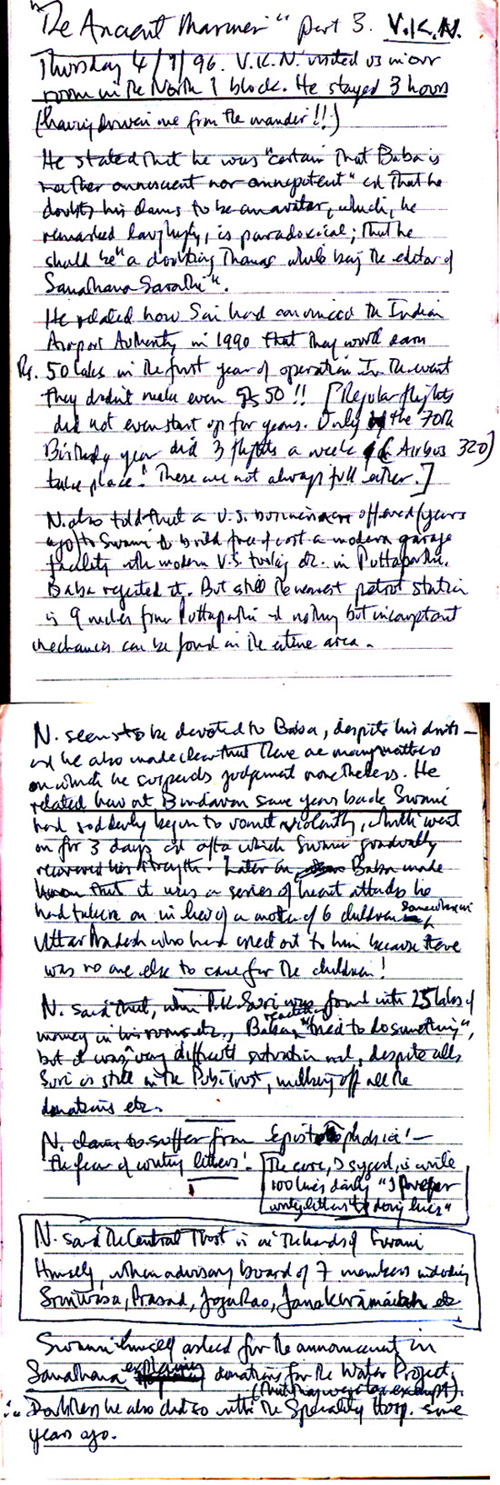 "The Ancient Mariner" part 3. V.K.N.
Thursday 4/7/96. V.K.N. visited us in our
room in the North 1 block. He stayed 3 hours
(having driven me from the mandir!!)
He stated that he was "certain that Baba is
neither omniscient nor omnipotent" and that he
doubts his claims to be an avatar, which, he
remarked laughingly, is paradoxical; that he
should be "a doubting Thomas while being the editor of
Sanathana Sarathi".
He related how Sai had convinced the Indian
Airport Authority in 1990 that they would earn
Rs. 50 lakhs in the first year of operation. In the event
they didn't make even Rs 50!! [Regular flights
did not even start up for years. Only the 70th
Birthday year did 3 flights a week (Airbus 320)
take place! These are not always full either.]
N. also told that a U.S. businessman offered (years
ago) to Swami to build free of cost a modern garage
facility with modern U.S. tooling etc. in Puttaparthi.
Baba rejected it. But still the nearest petrol station
is 9 miles from Puttaparthi and nothing but incompetent
mechanics can be found in the entire area.
N. seems to be devoted to Baba, despite his doubts –
and he also made clear that there are many matters
on which he suspends judgement nonetheless. He
related how at Brindavan some years back Swami
had suddenly begun to vomit violently, which went
on for 3 days and after which Swami gradually
recovered his strength. Later on, Baba made
known that it was a series of heart attacks he
had taken on in lieu of a mother of 6 children somewhere in
Uttar Pradesh who had cried out to him because there
was no one else to care for the children!
N. said that, when P.K. Suri was found with 25 lakhs of
money in his rooms etc., Baba "tried to do something",
but it was very difficult and, despite all,
Suri is still in the Pubs. Trust, milking off all the
donations etc.
N. claims to suffer from 'Epistolophobia'! –
'the fear of writing letters'.
The cure, I suggest, is write
100 lines daily "I prefer
writing letters to doing lines"
N. said the Central Trust is in the hands of Swami
Himself, with an advisory board of 7 members including
Srinivasan, Prasad, Joga Rao, Janakiramaiah etc
Swami himself asked for the announcement in
Sanathana explaining donations for the Water Project,
(that they were tax exempt).
Doubtless he also did so with the Speciality Hosp. some
years ago.